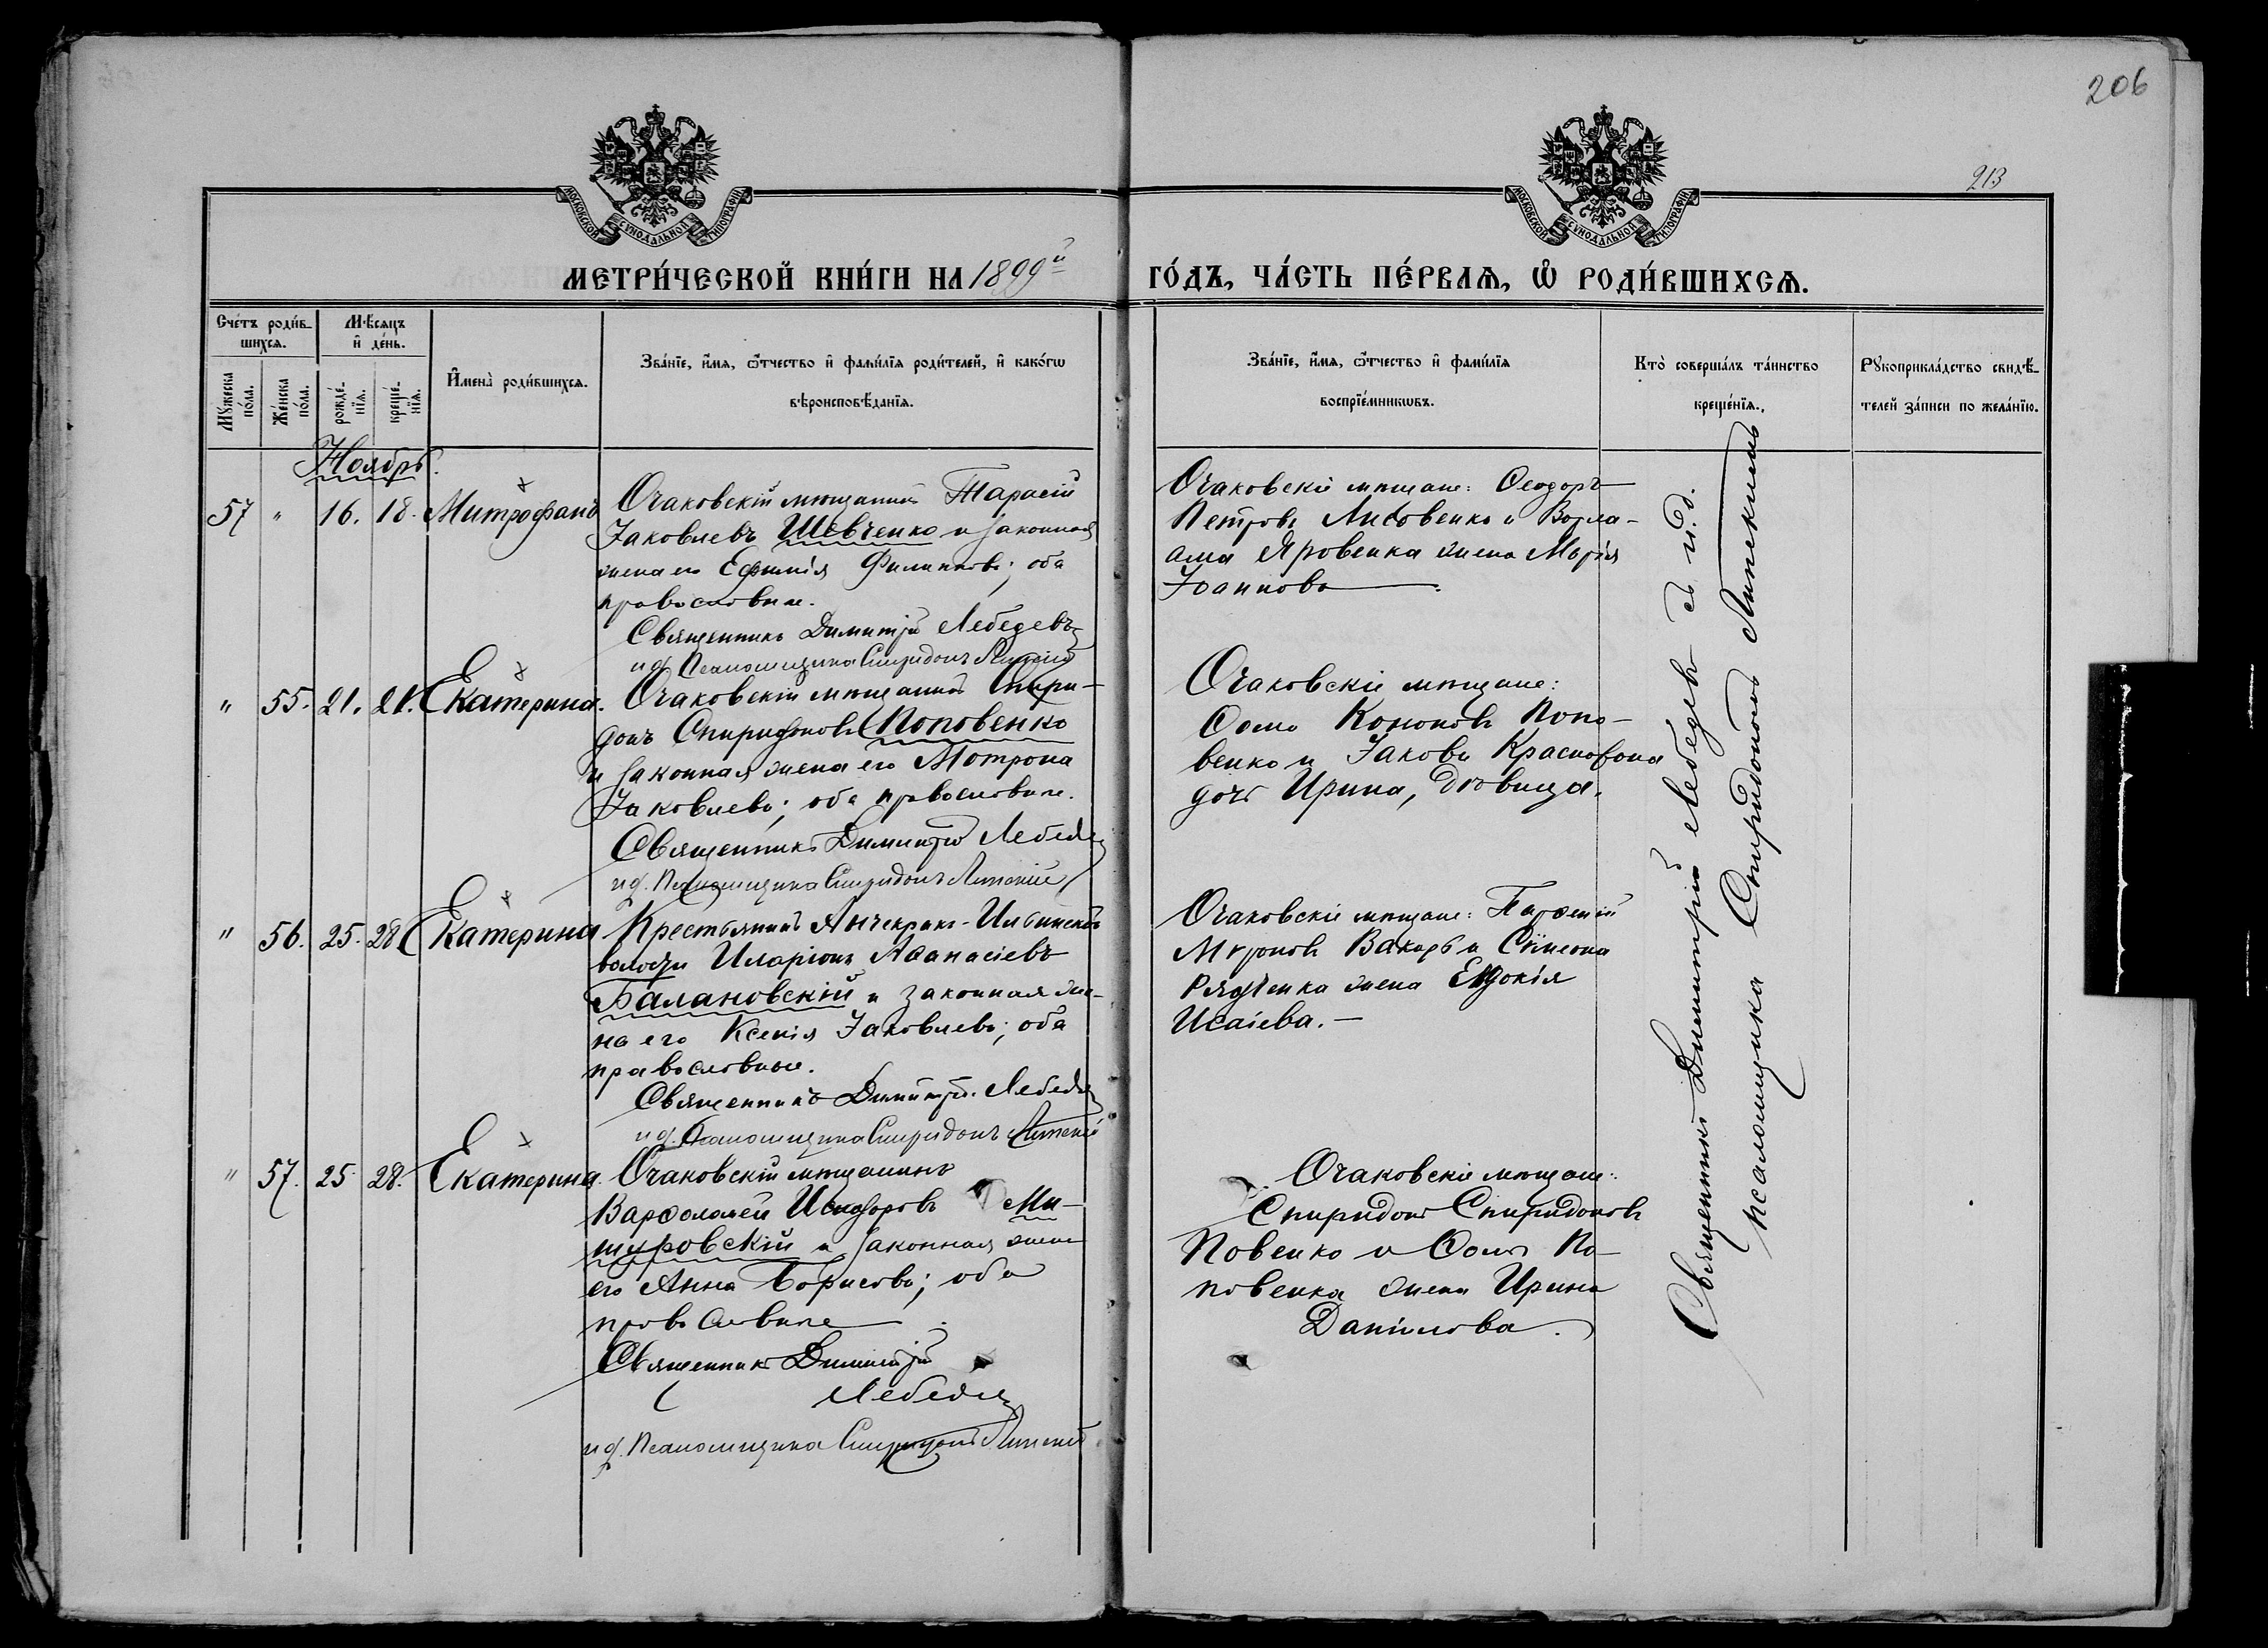 206
213
МОСКОВСКОЙ СѴНОДАЛЬНОЙ ТИПОГРАФІИ
МОСКОВСКОЙ СѴНОДАЛЬНОЙ ТИПОГРАФІИ
МЕТРИ́ЧЕСКОЙ КНИ́ГИ НА 1899й
ГО́ДЪ, ЧА́СТЬ ПЕ́РВАѦ, Ѽ РОДИ́ВШИХСѦ.
Сче́тъ роди́вшихсѧ.
Мѣ́сѧцъ и҆ де́нь.
Мꙋ́жеска по́ла.
Же́нска по́ла.
рожде́-нїѧ.
креще́-нїѧ.
И҆мена̀ роди́вшихсѧ.
Зва́нїе, и҆́мѧ, ѻ҆́тчество и҆ фами́лїѧ роди́телей, и҆ како́гѡ
вѣроисповѣ́данїѧ.
Зва́нїе, и҆́мѧ, ѻ҆́тчество и҆ фами́лїѧ
воспрїе́мникѡвъ.
Кто̀ соверша́лъ та́инство
креще́нїѧ.
Рꙋкоприкла́дство свидѣ́-
телей за́писи по жела́нїю.
Ноябрь.
57 " 16. 18. Митрофанъ
Очаковскій мѣщанинъ Тарасій
Іаковлевъ Шевченко и законная
жена его Ефимія Филиппова; оба
православные.
Священникъ Димитрій Лебедевъ
и д. Псаломщика Спиридонъ Липскій
Очаковскіе мѣщане: Ѳеодоръ
Петровъ Лисовенко и Варла-
ама Яровенка жена Марія
Іоаннова
" 55. 21. 21. Екатерина.
Очаковскій мѣщанинъ Спири-
донъ Спиридоновъ Поповенко
и законная жена его Мотрона
Іаковлева; оба православные.
Священникъ Димитрій Лебедев
и д. Псаломщика Спиридонъ Липскій
Очаковскіе мѣщане:
Ѳома Кононовъ Попо-
венко и Іакова
дочь Ирина, дѣвица.
" 56. 25. 28 Екатерина
Крестьянинъ Анчекракъ-Ильинской
волости Иларіонъ Аѳанасіевъ
Балановскій и законная же-
на его Ксенія Іаковлева; оба
православные.
Священникъ Димитрій Лебедев
и д. Псаломщика Спиридонъ Липскій
Очаковскіе мѣщане: Парѳеній
Мѵроновъ Вакарь и Сѵмеона
Рядченка жена Евдокія
Исаіева.—
" 57. 25 28. Екатерина.
Очаковскій мѣщанинъ
Варѳоломей Исидоровъ Ми-
шуровскій и законная жена
его Анна Борисова; оба
православные
Священникъ Димитрій
Лебедев
и д. Псаломщика Спиридонъ Липскій
Очаковскіе мѣщане:
Спиридонъ Спиридоновъ
Повенко и Ѳомы По-
повенка жена Ирина
Даніилова.
Священникъ Димитрій Лебедевъ съ и. д.
псаломщика Спиридономъ Липскимъ